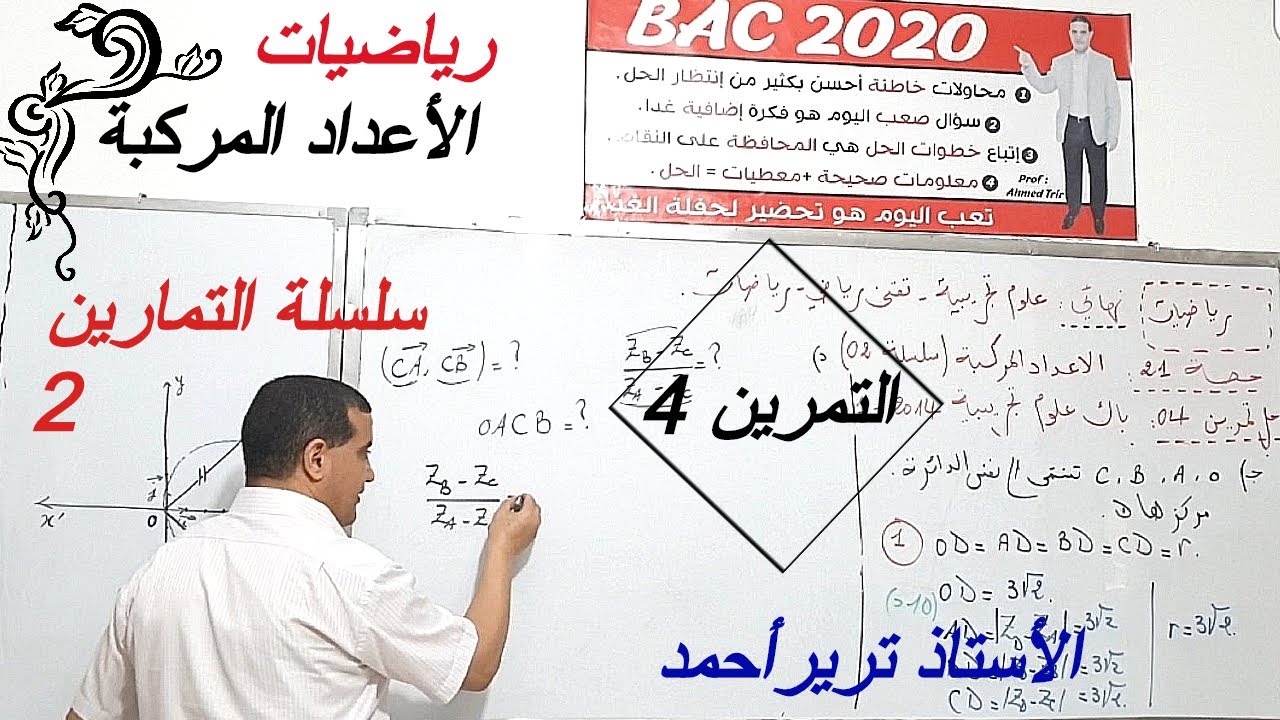 رياضيات
الأعداد المركبة
سلسلة التمارين
2
التمرين 4
الأستاذ ترير أحمد
BAC 2020
1 محاولات خاطئة أحسن بكثير من إنتظار الحل.
2 سؤال صعب اليوم هو فكرة إضافية غدا.
3 إتباع خطوات الحل هي المحافظة على
4 معلومات صحيحة +معطيات = الحل.
Prof :
Ahmed Trir
تعب اليوم هو تحضير لحفلة
رياضيات نهائي: علوم تجريبية - تقني رياضي - رياضيات.
حصة 21: الأعداد المركبة (سلسلة 02)
تمرين 04: باك علوم تجريبية 2014
(CA, CB) = ?
Z_B - Z_C / Z_A - = ?
OACB = ?
Z_B - Z_C / Z_A - Z =
ج) O, A, B, C تنتمي إلى نفس الدائرة.
مركزها D.
1 OD = AD = BD = CD = r.
OD = 3√2.
= 3√2
= 3√2
CD = |Z_D - Z_C| = 3√2.
r = 3√2.
y
x'
O